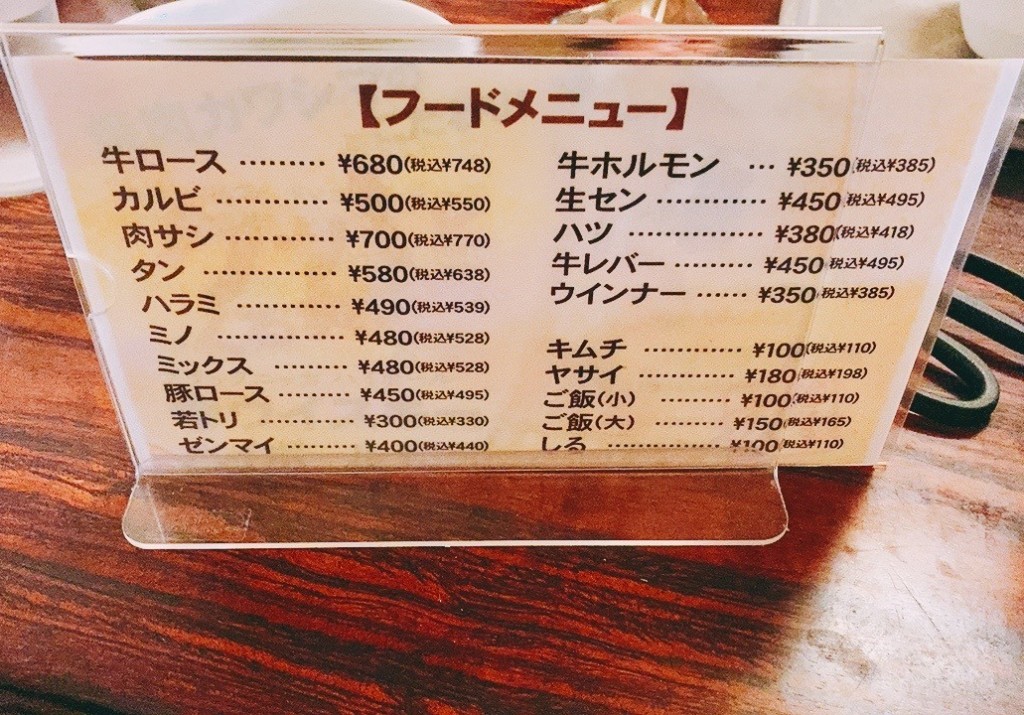 【フードメニュー】
牛ロース ········· ¥680(税込¥748)
カルビ ············ ¥500(税込¥550)
肉サシ ············ ¥700(税込¥770)
タン ·············· ¥580(税込¥638)
ハラミ ············ ¥490(税込¥539)
ミノ ·············· ¥480(税込¥528)
ミックス ········· ¥480(税込¥528)
豚ロース ········· ¥450(税込¥495)
若トリ ············ ¥300(税込¥330)
ゼンマイ ········· ¥400(税込¥440)
牛ホルモン ··· ¥350(税込¥385)
生セン ············ ¥450(税込¥495)
ハツ ·············· ¥380(税込¥418)
牛レバー ········· ¥450(税込¥495)
ウインナー ······ ¥350(税込¥385)
キムチ ············ ¥100(税込¥110)
ヤサイ ············ ¥180(税込¥198)
ご飯(小) ········· ¥100(税込¥110)
ご飯(大) ········· ¥150(税込¥165)
しる ·············· ¥100(税込¥110)